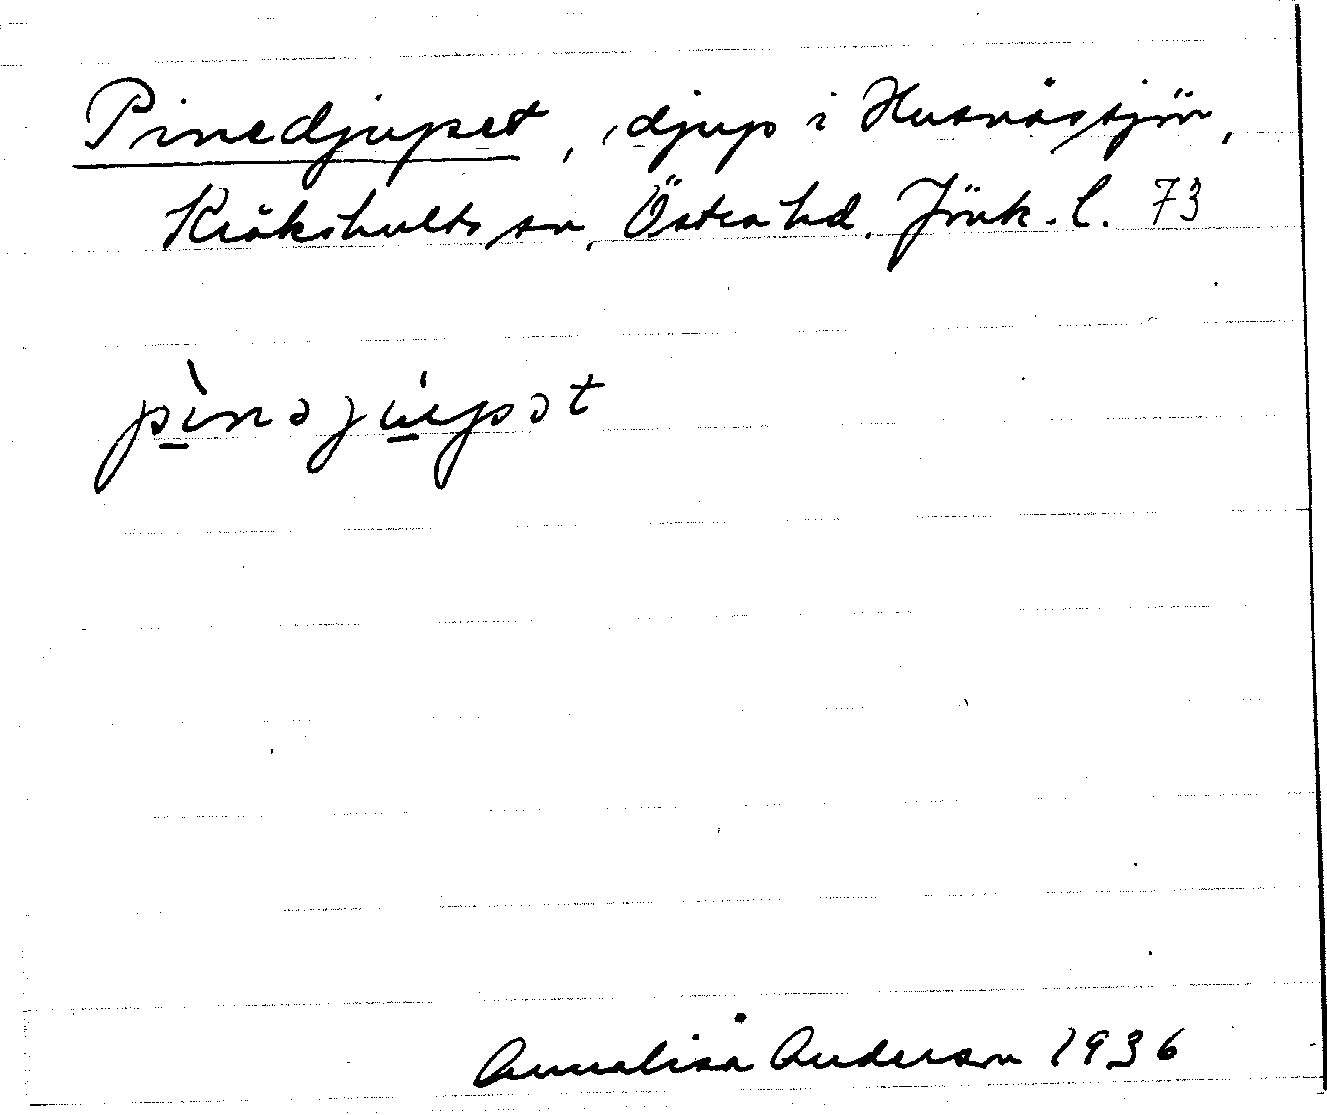 Pinedjupet, djup i Husnässjön,
Kråkshults sn, Östra hd. Jönk. l. 73
pìnəjúpət
Annalisa Anderson 1936